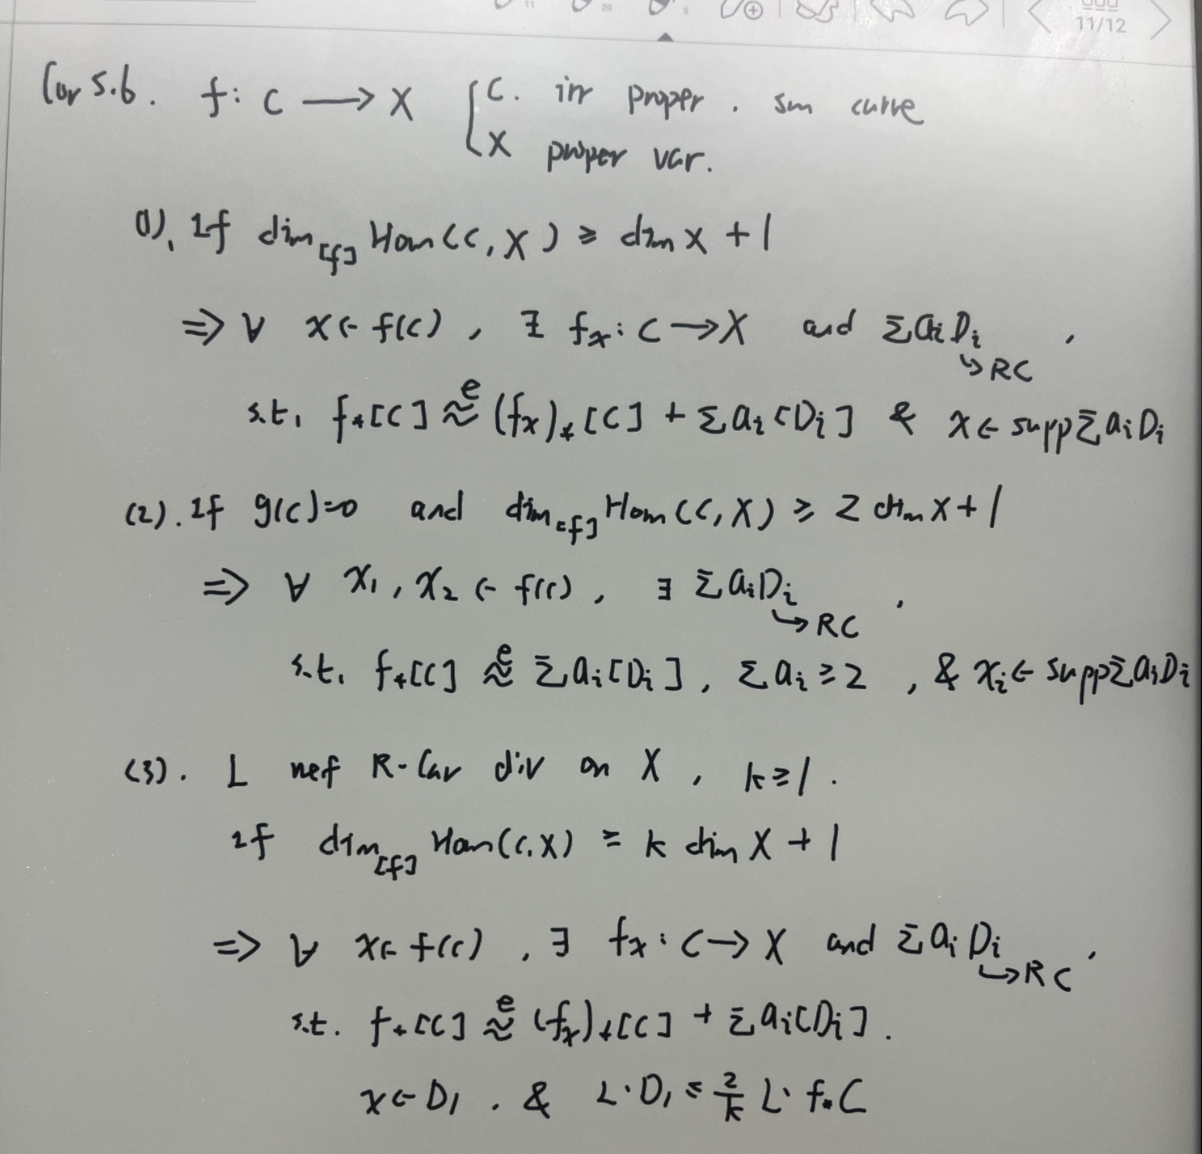 11/12
Cor 5.6. f: C → X { C. irr proper. sm curve
X proper var.
(1). If dim_[f] Hom(C, X) ≥ dim X + 1
⇒ ∀ x ∈ f(C), ∃ f_x: C → X and Σ a_i D_i ,
↳ RC
s.t. f_*[C] ≈^e (f_x)_*[C] + Σ a_i [D_i] & x ∈ supp Σ a_i D_i
(2). If g(C)=0 and dim_[f] Hom(C, X) ≥ 2 dim X + 1
⇒ ∀ x_1, x_2 ∈ f(C), ∃ Σ a_i D_i .
↳ RC
s.t. f_*[C] ≈^e Σ a_i [D_i], Σ a_i ≥ 2, & x_i ∈ supp Σ a_i D_i
(3). L nef R-Car div on X, k ≥ 1.
If dim_[f] Hom(C, X) ≥ k dim X + 1
⇒ ∀ x ∈ f(C), ∃ f_x: C → X and Σ a_i D_i ,
↳ RC
s.t. f_*[C] ≈^e (f_x)_*[C] + Σ a_i [D_i].
x ∈ D_1. & L·D_1 ≤ 2/k L·f_*C